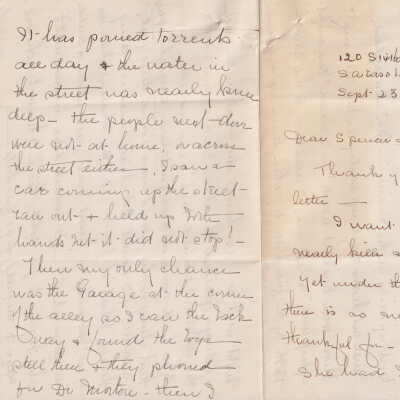 It has poured torrents
all day & the water in
the street was nearly knee
deep - the people next-door
were not at home, or across
the street either, I saw a
car coming up the street -
ran out - & held up both
hands but it did not stop! -
Then my only chance
was the Garage at the corner
of the alley so I ran the
& found the
still there & they phoned
for Dr Morton - then I
120
Saraso
Sept 23
Dear Spencer
Thank y
letter —
I want
nearly
Yet under th
there is so
thankful for -
She had